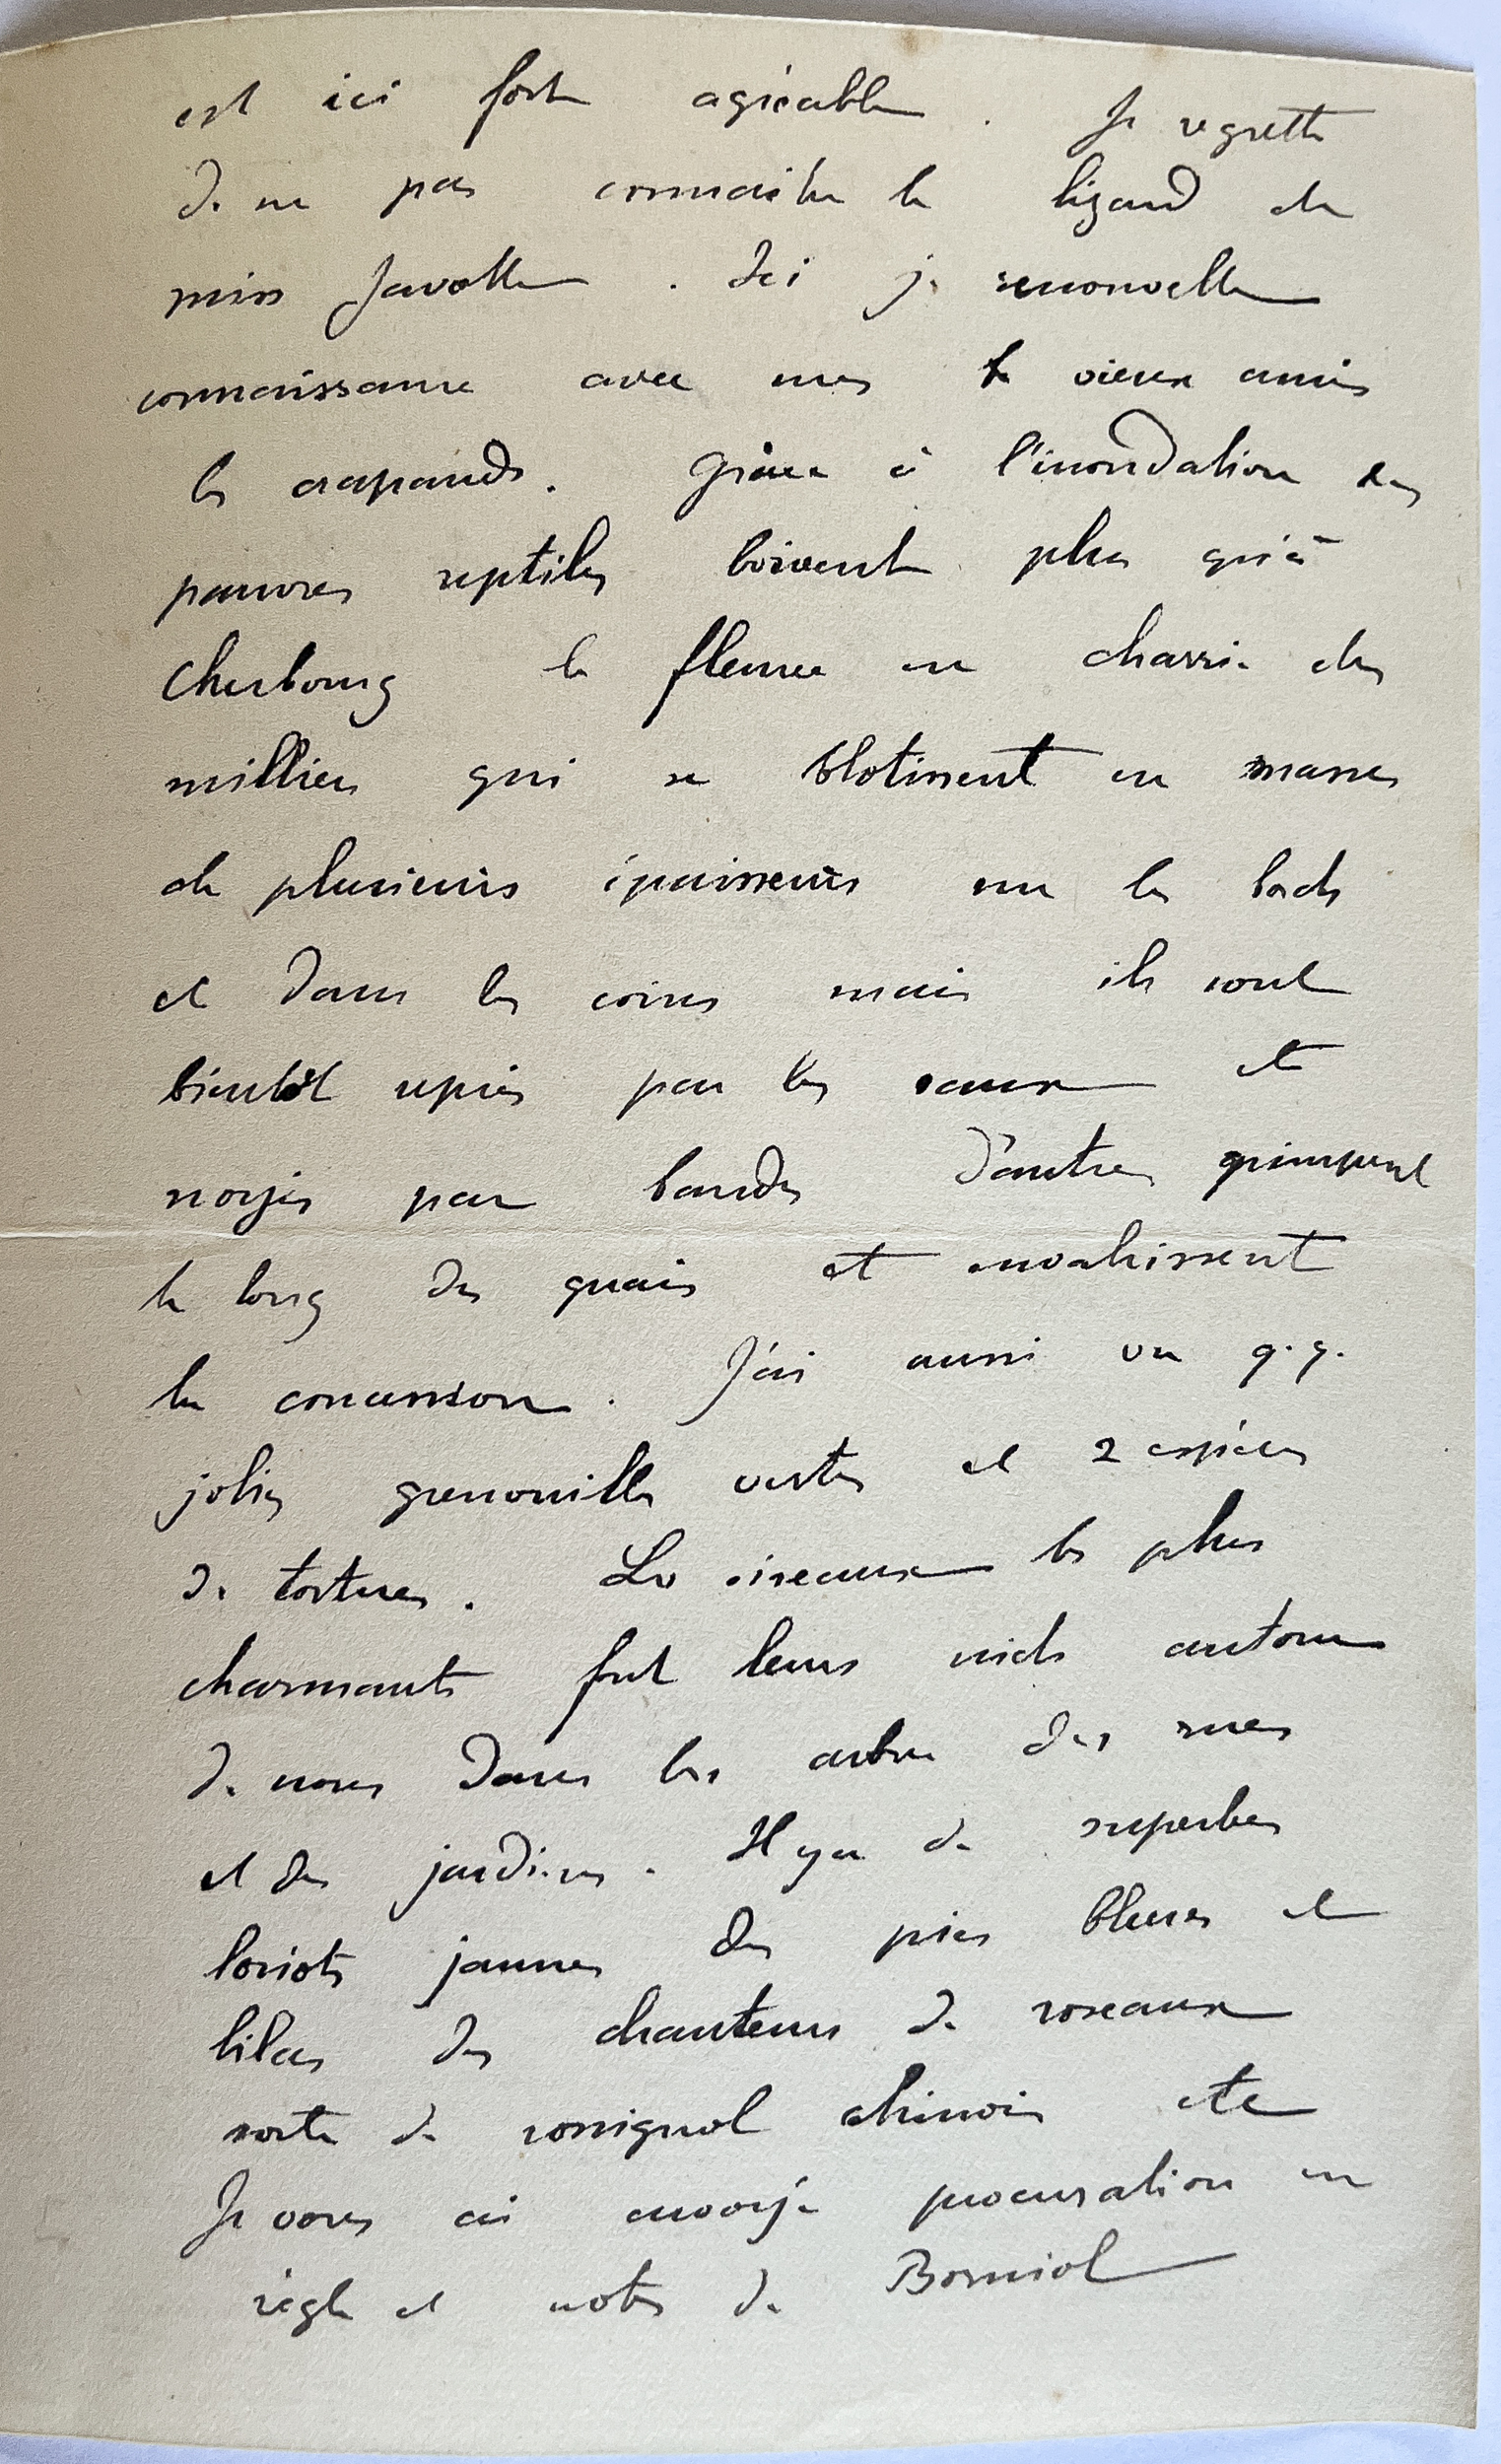 est ici fort agréable. Je regrette
de ne pas connaitre le lizard de
miss Javotte. Ici je renouvelle
connaissance avec mes vieux amis
les crapauds. Grâce à l'inondation ces
pauvres reptiles boivent plus qu'à
Cherbourg le fleuve en charrie des
milliers qui se blotissent en masses
de plusieurs épaisseurs sur les bords
et dans les coins mais ils sont
bientôt repris par les eaux et
noyés par bandes d'autres grimpent
le long des quais et envahissent
la concession. J'ai aussi vu q.q.
jolies grenouilles vertes et 2 espèces
de tortues. Les oiseaux les plus
charmants font leurs nids autour
de nous dans les arbres des rues
et des jardins. Il y a de superbes
loriots jaunes des pies bleues et
lilas des chanteurs de roseaux
sorte de rossignol chinois etc
Je vous ai envoyé procuration en
règle et notes de Borniol